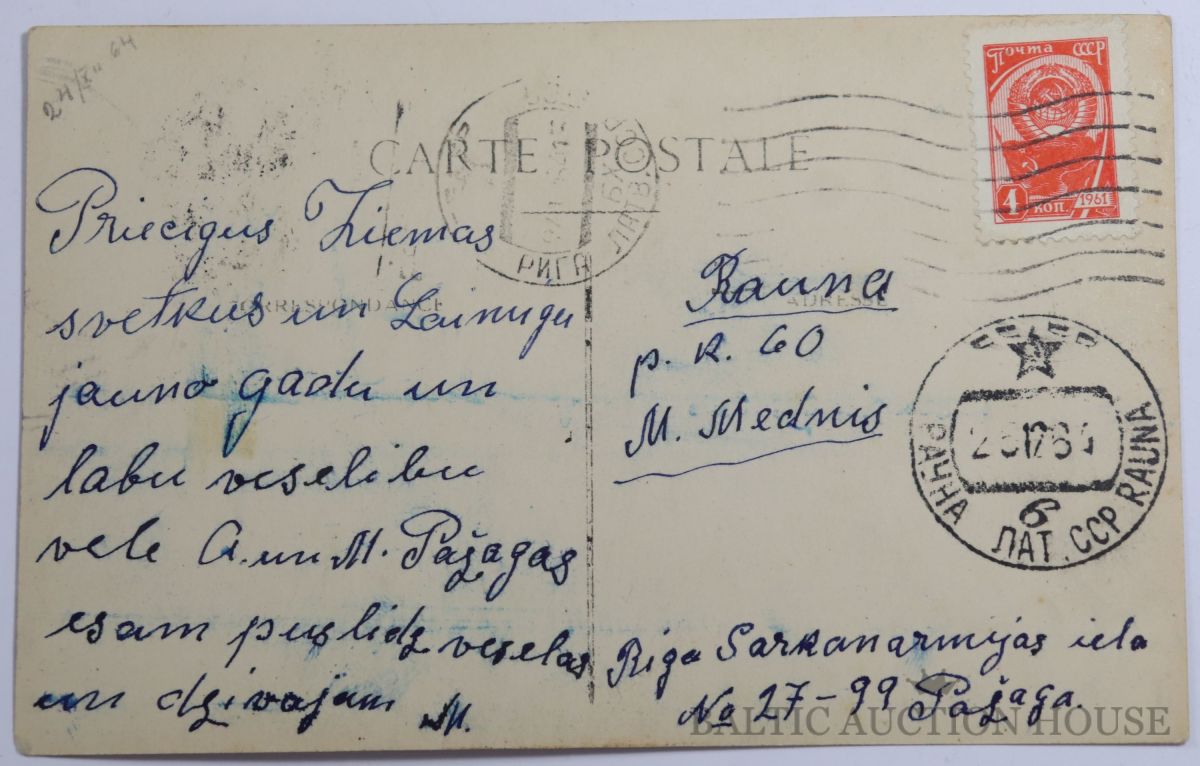 24/XII 64
CARTE POSTALE
CORRESPONDANCE
ADRESSE
Почта СССР
4 коп. 1961
РИГА ЛАТВ.
Priecigus Ziemas
svetkus un Laimigu
jauno gadu un
labu veselibu
vele A. un M. Pažagas
esam puslidz veselas
un dzivojam M.
Rauna
p. k. 60
M. Mednis
РАУНА ЛАТ. ССР RAUNA
б
Riga Sarkanarmijas iela
No 27-99 Pažaga.
BALTIC AUCTION HOUSE